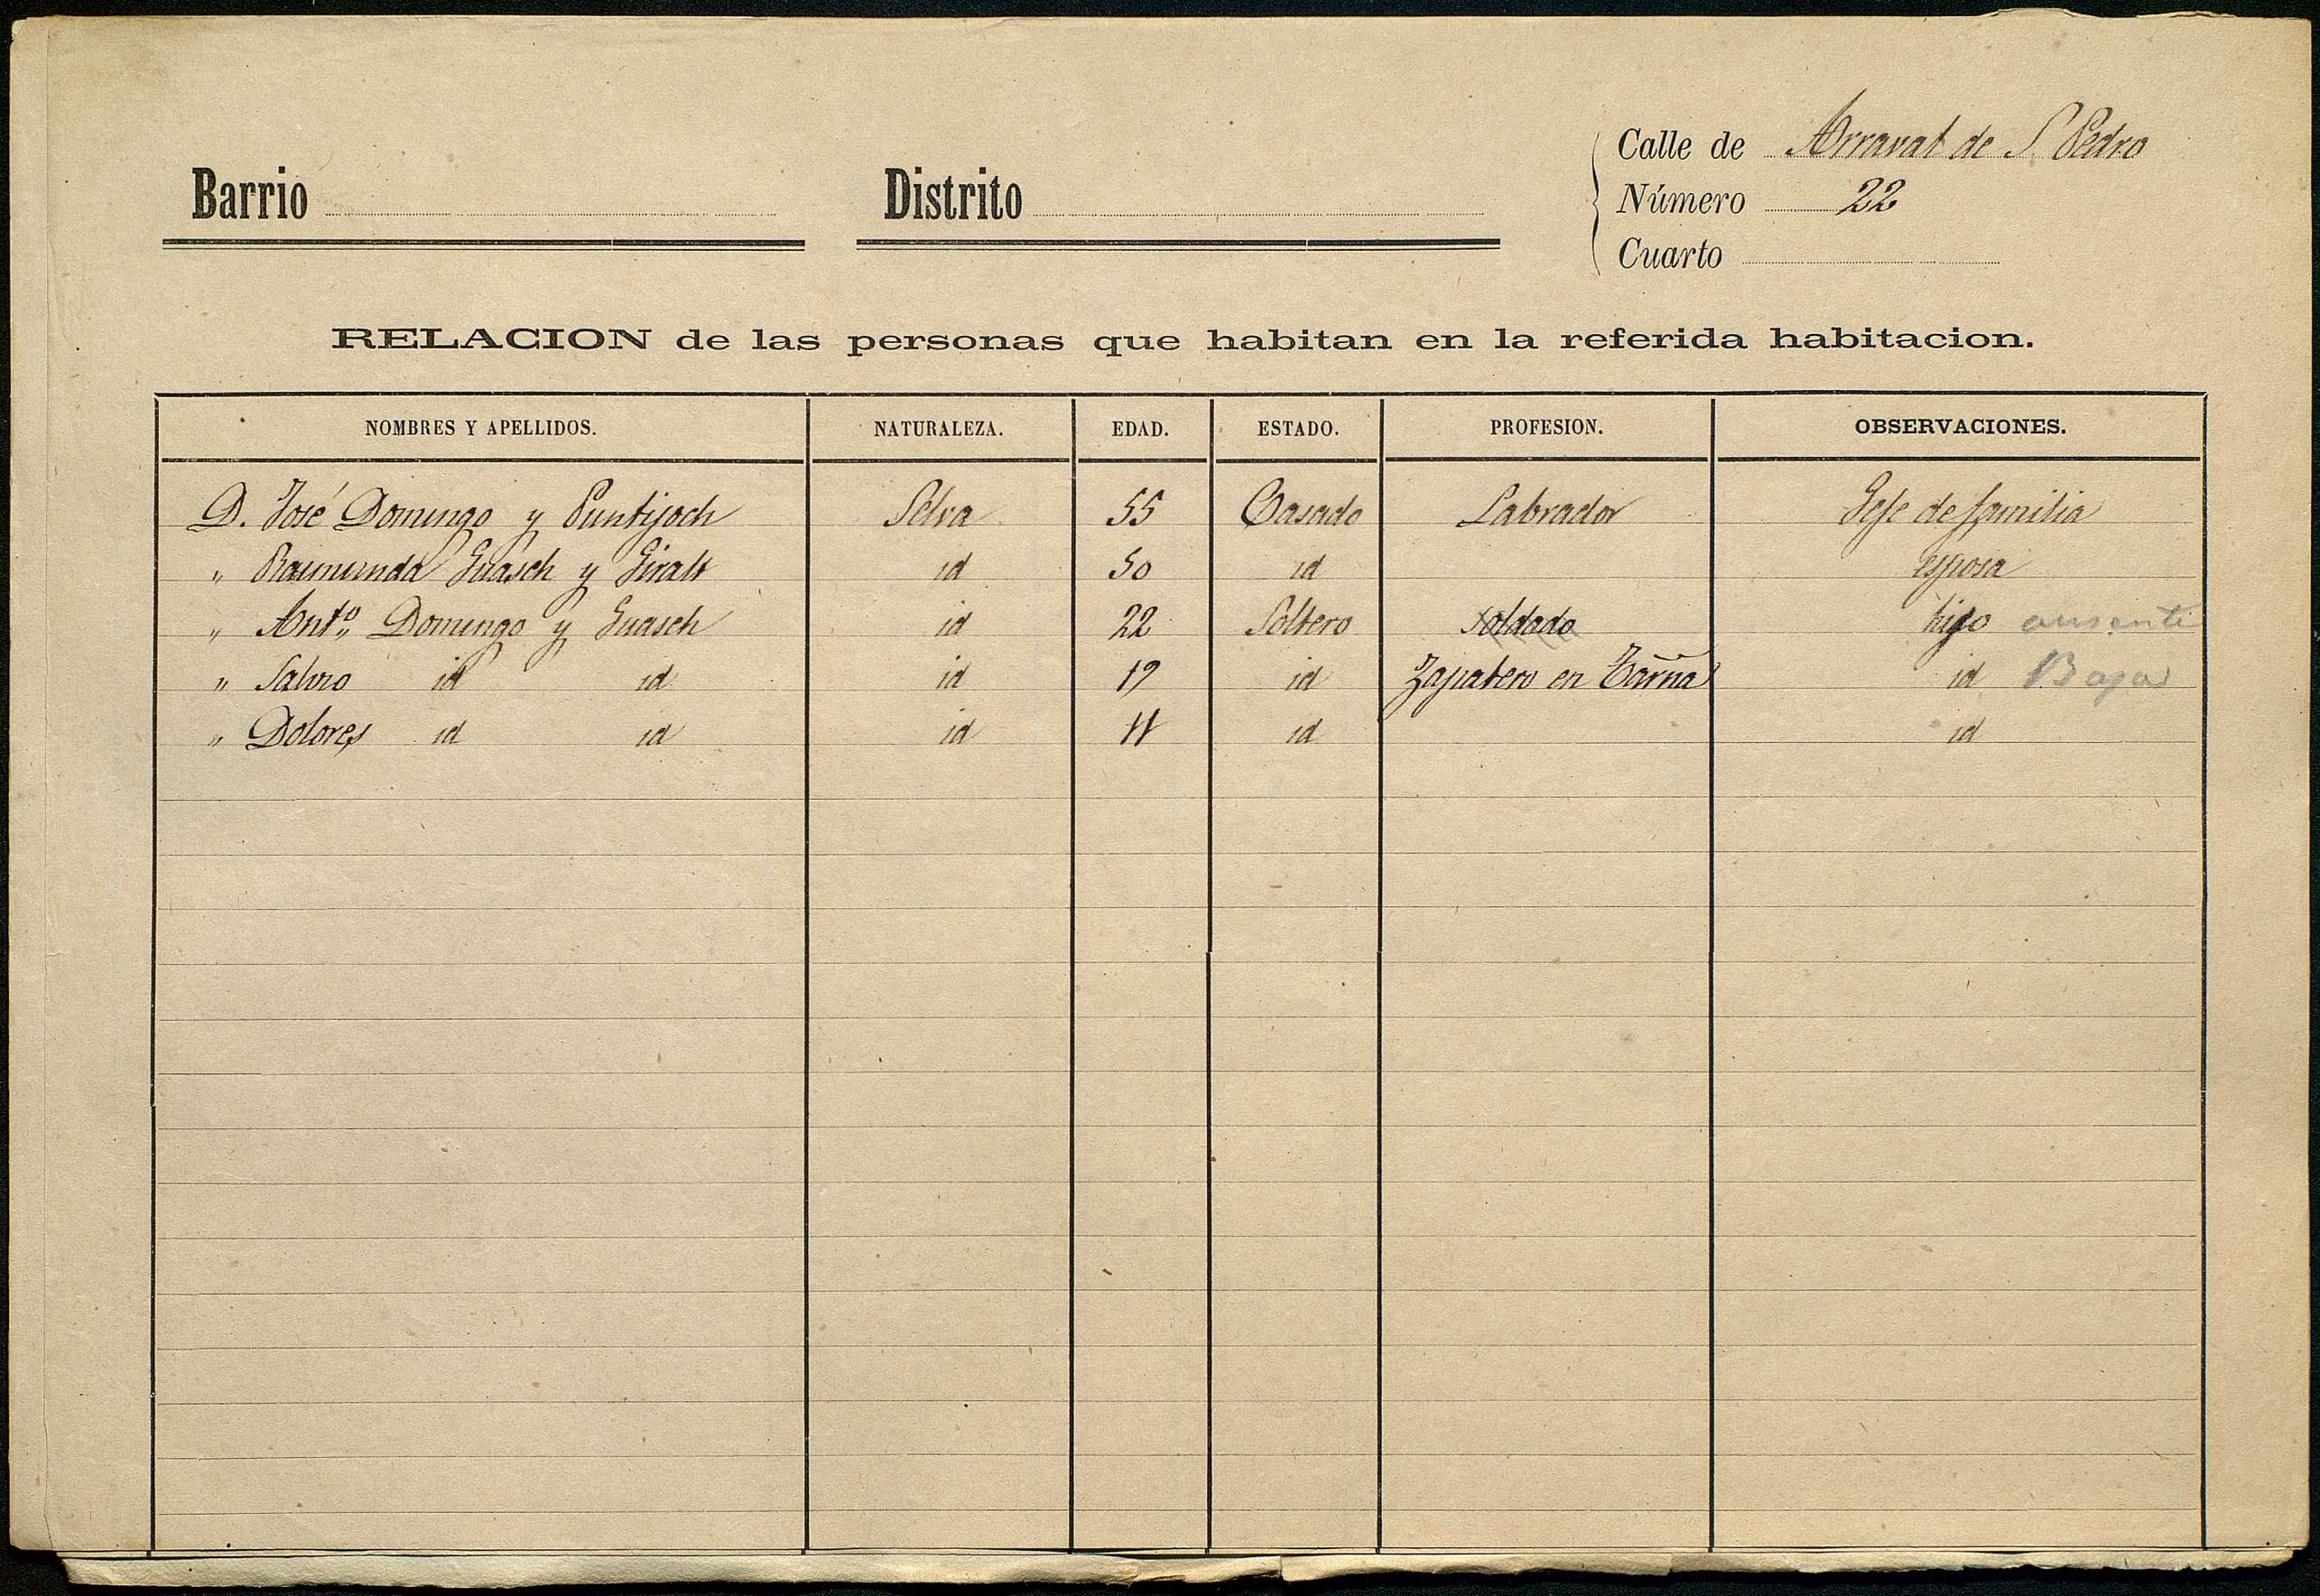 Barrio
Distrito
Calle de Arraval de S. Pedro
Número 22
Cuarto
RELACION de las personas que habitan en la referida habitacion.
NOMBRES Y APELLIDOS. NATURALEZA. EDAD. ESTADO. PROFESION. OBSERVACIONES.
D. José Domingo y Puntijoch Selva 55 Casado Labrador Gefe de familia
" Raimunda Guasch y Giralt id 50 id esposa
" Ant.º Domingo y Guasch id 22 Soltero Soldado hijo ausente
" Salvio id id id 19 id Zapatero en Tarrna id Baja
" Dolores id id id 11 id id